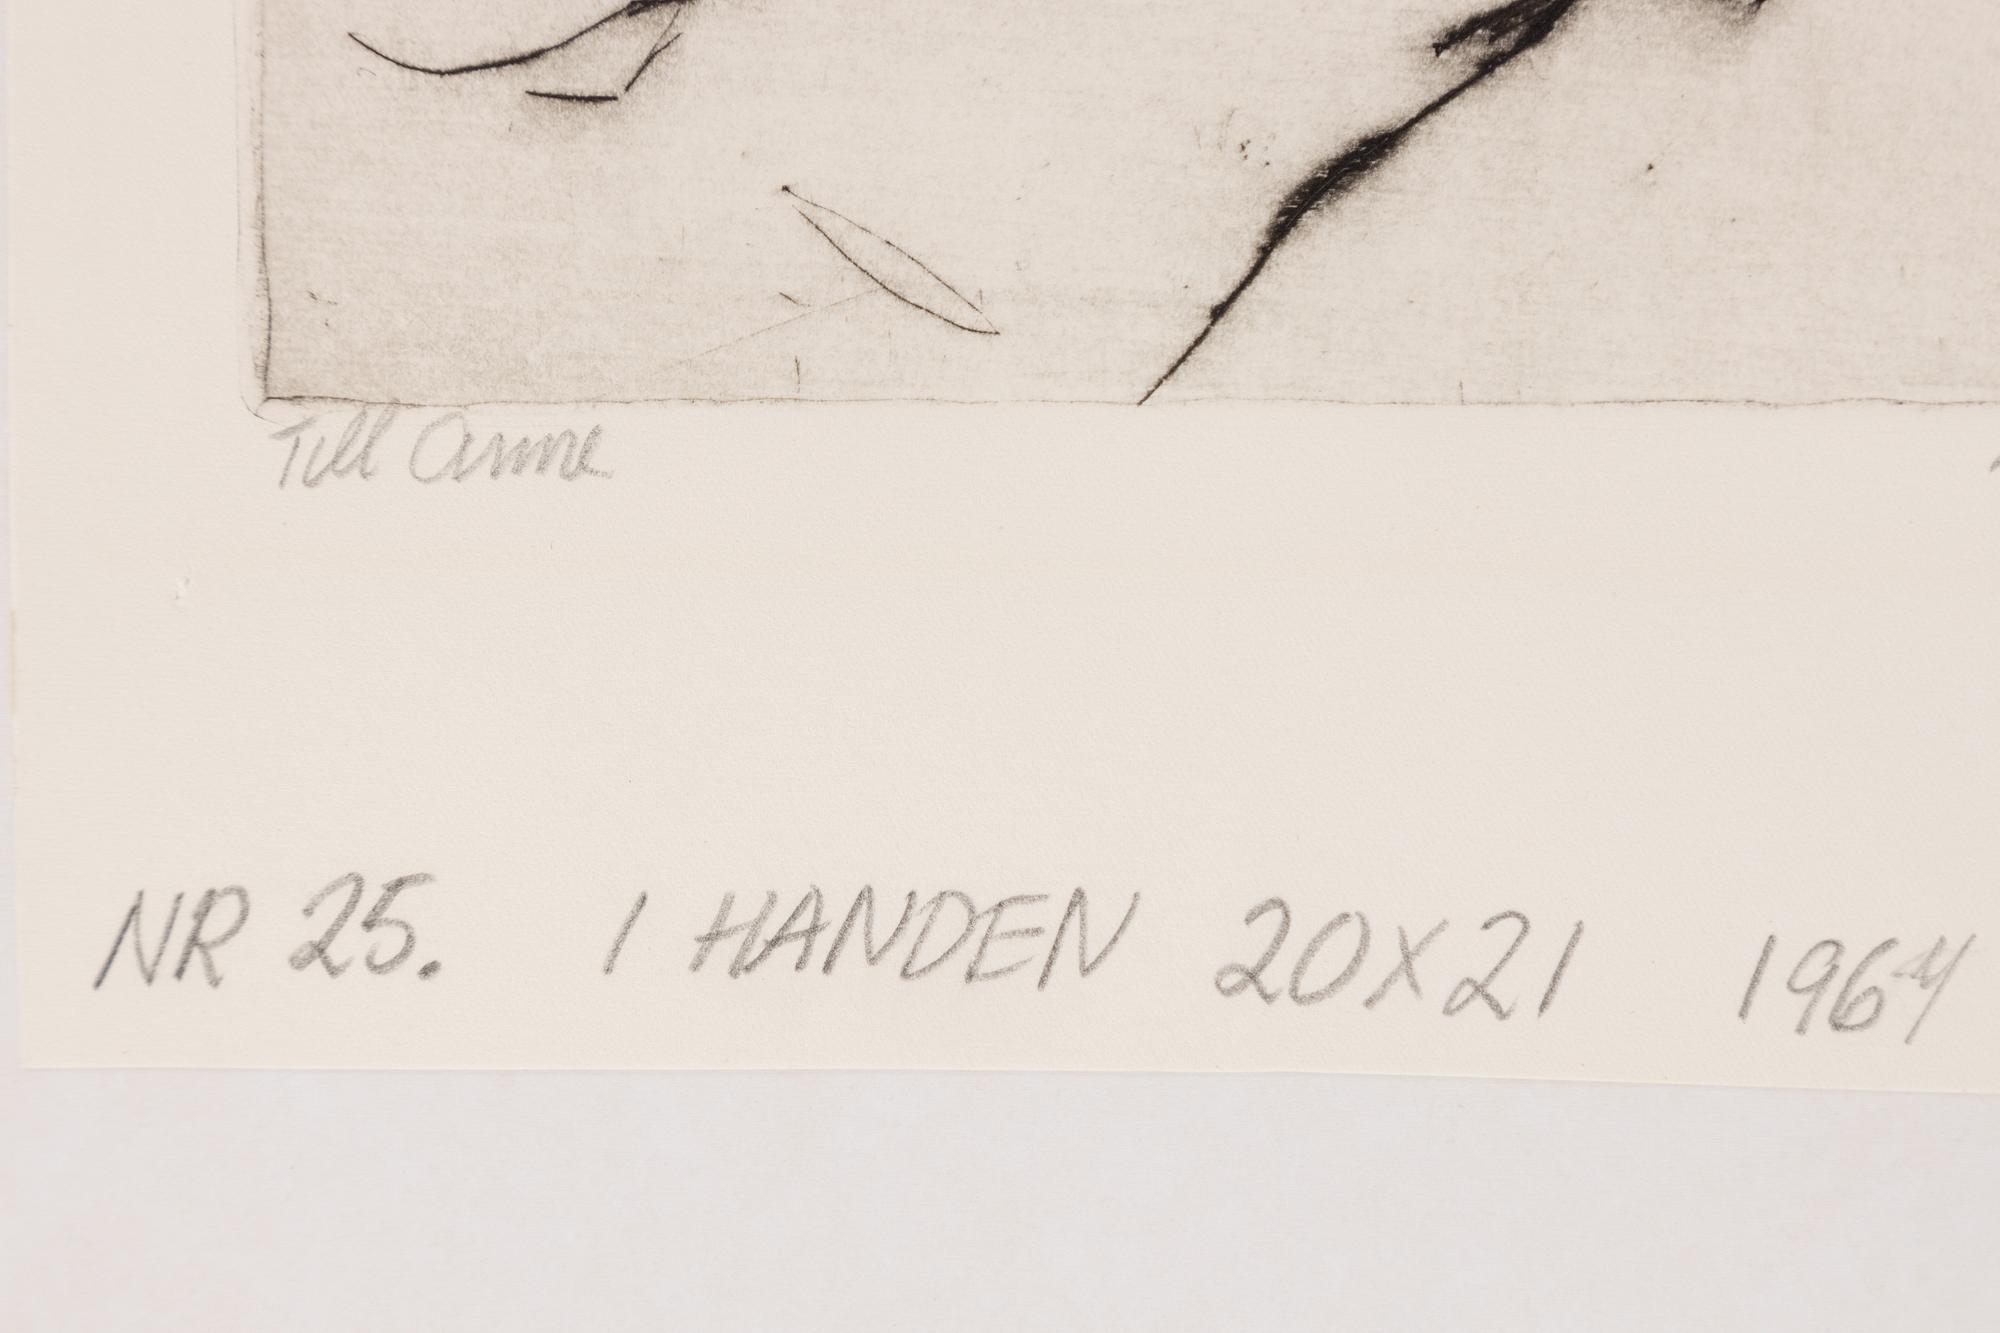 Till Anne
NR 25. I HANDEN 20X21 1964